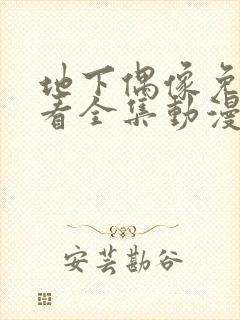 地下偶像免
看全集動漫
安芸勘谷